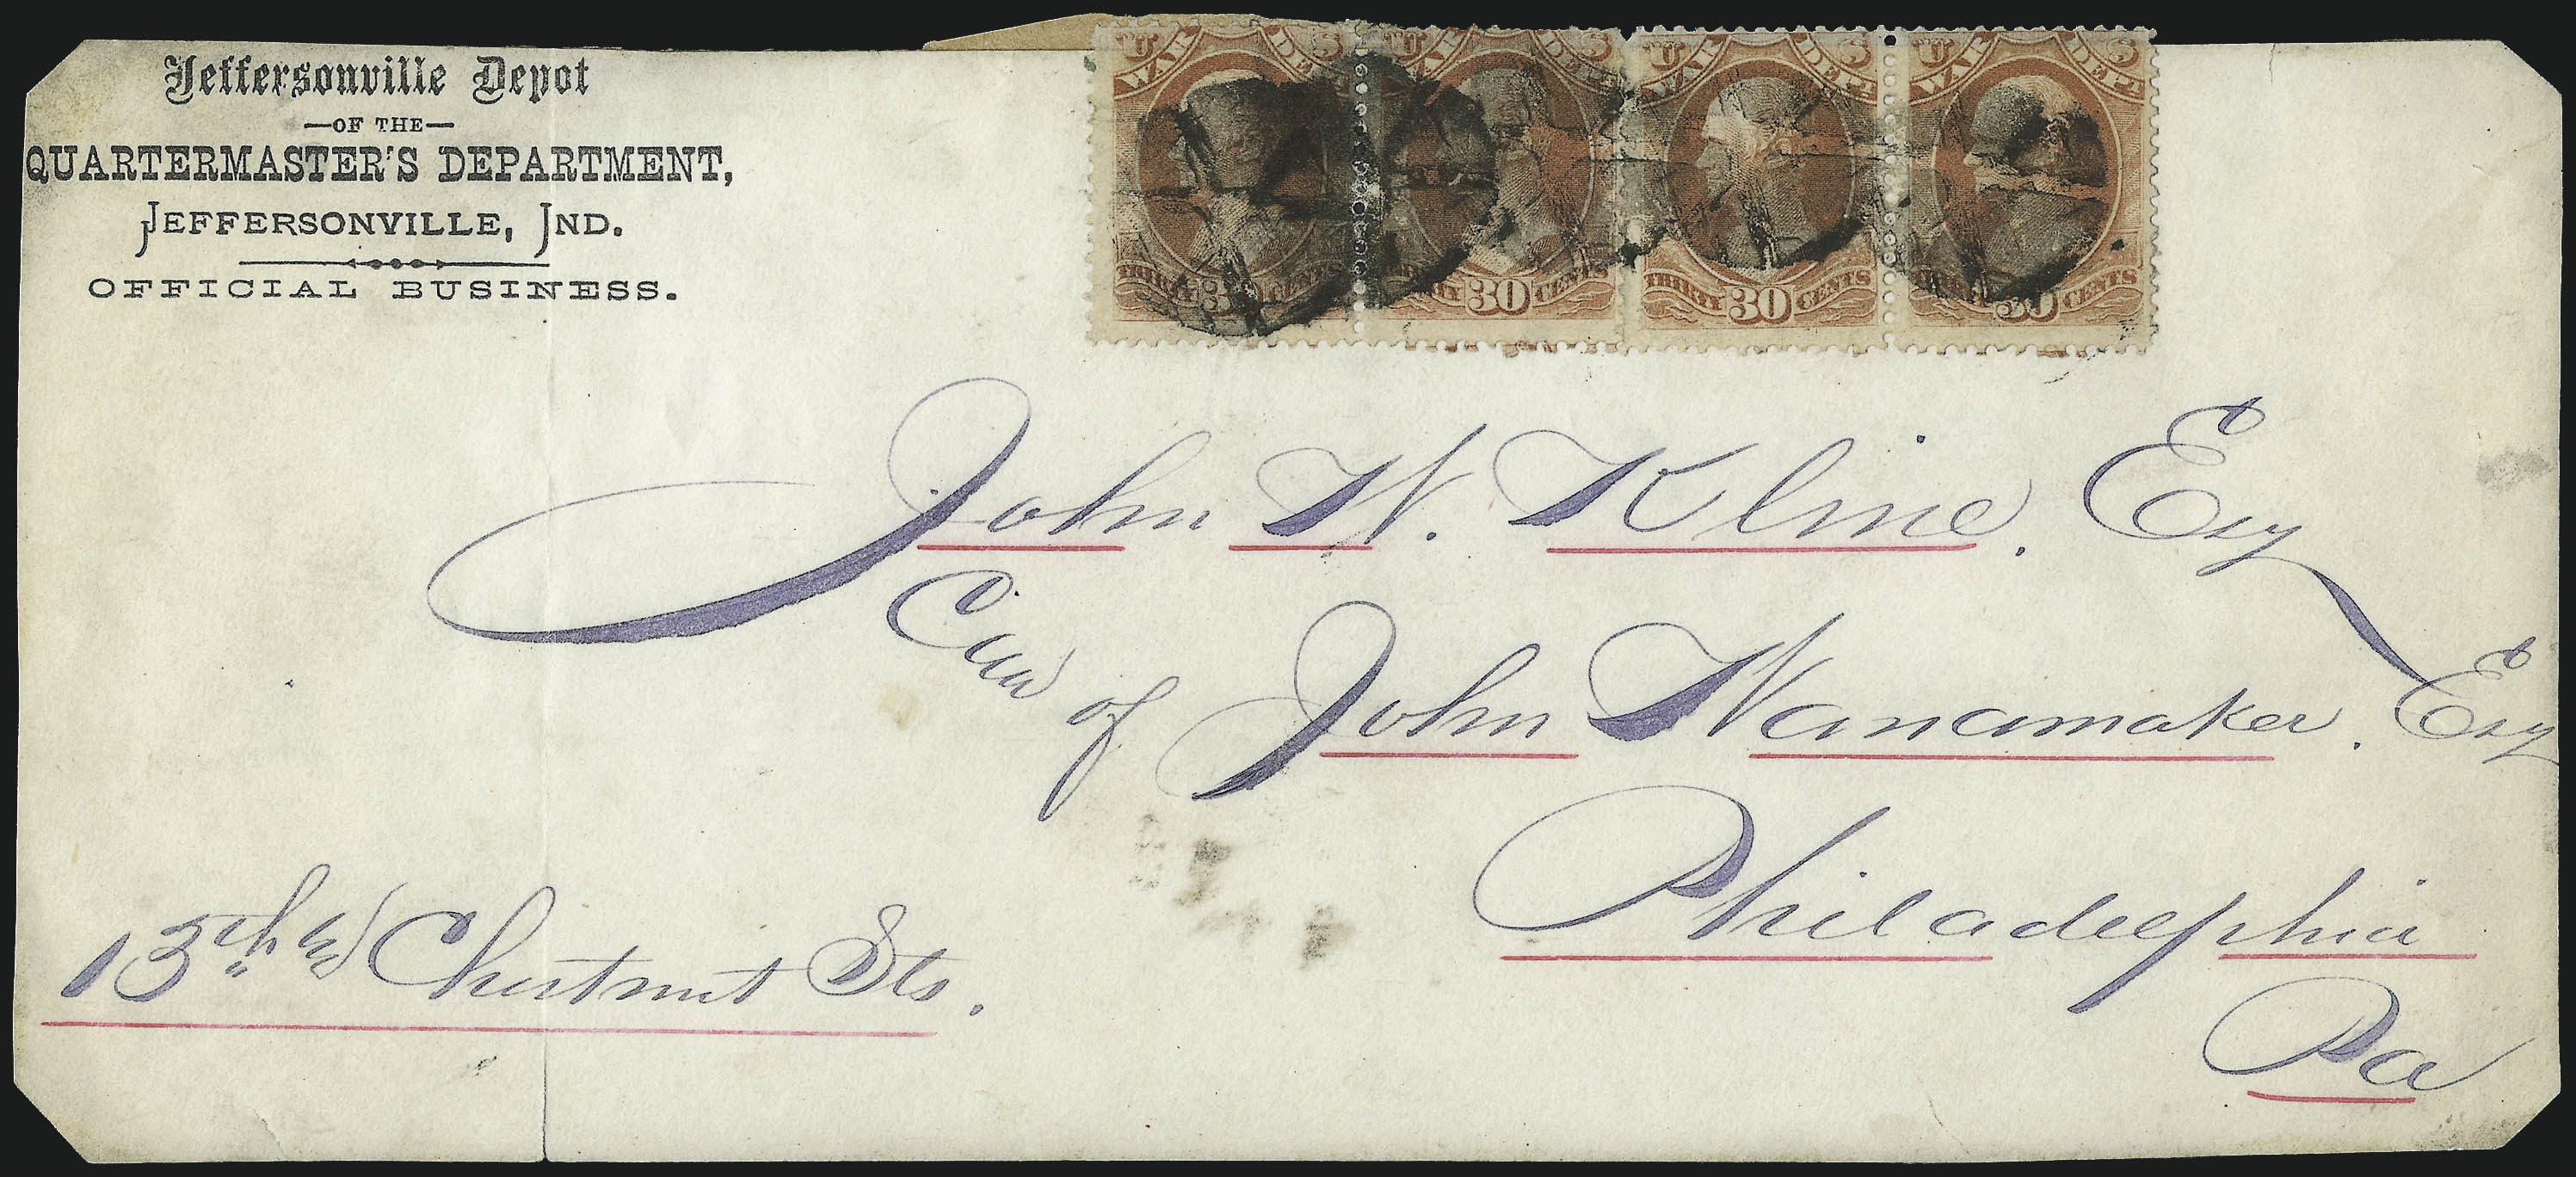 Jeffersonville Depot
—OF THE—
QUARTERMASTER'S DEPARTMENT,
JEFFERSONVILLE, IND.
OFFICIAL BUSINESS.
U S U S U S U S
WAR DEPT. WAR DEPT. WAR DEPT. WAR DEPT.
THIRTY 30 CENTS THIRTY 30 CENTS THIRTY 30 CENTS THIRTY 30 CENTS
John W. Kline. Esq
Care of John Wanamaker. Esq
Philadelphia
Pa
13th and Chestnut Sts.